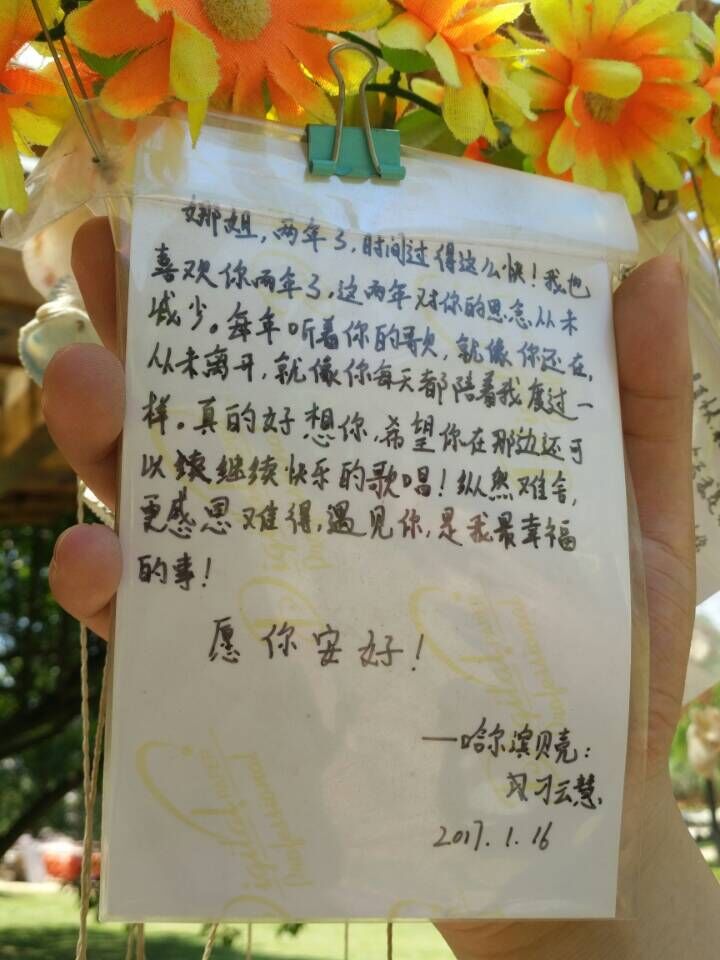 娜姐,两年了,时间过得这么快!我也
喜欢你两年了,这两年对你的思念从未
减少。每年听着你的歌,就像你还在,
从未离开,就像你每天都陪着我度过一
样。真的好想你,希望你在那边还可
以续继续快乐的歌唱!纵然难舍,
更感恩难得,遇见你,是我最幸福
的事!
愿你安好!
—哈尔滨贝壳:
刁云慧
2017.1.16